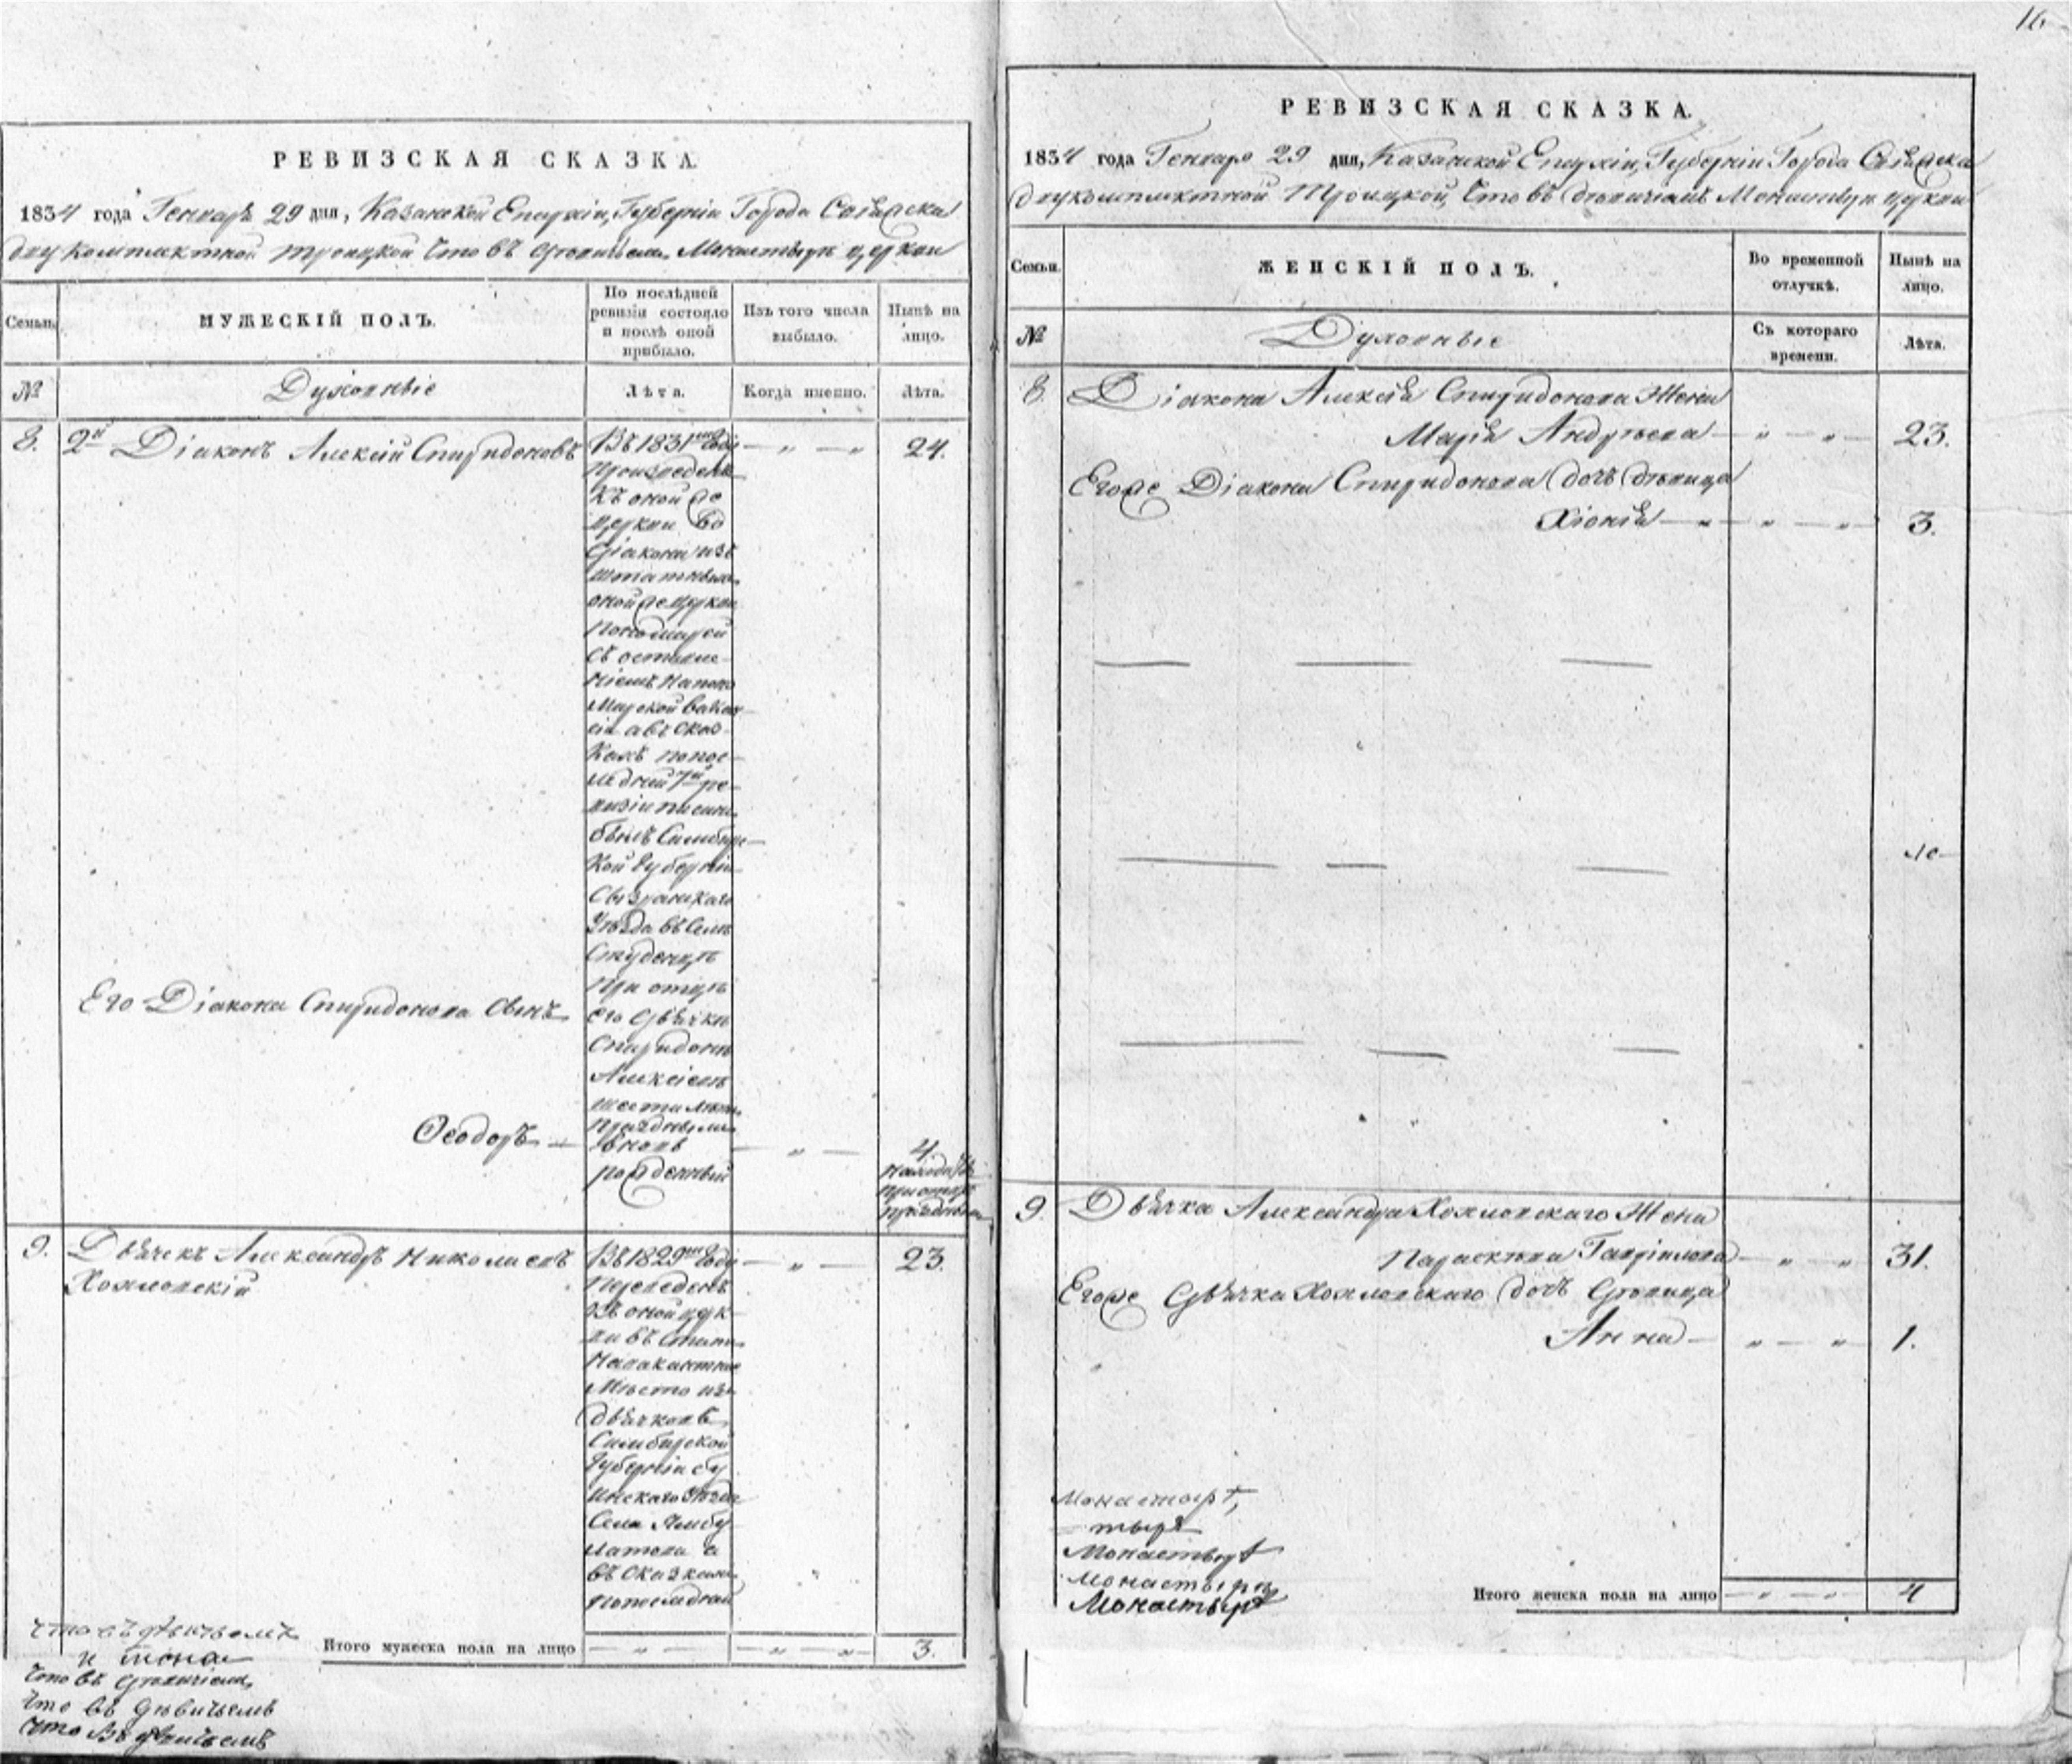 РЕВИЗСКАЯ СКАЗКА.
1834 года Генваря 29 дня, Казанской Епархіи, Губерніи Города Свіяжска
двукомплектной Троицкой что въ дѣвичьемъ Монастырѣ церкви
Семьи.
МУЖЕСКІЙ ПОЛЪ.
По послѣдней
ревизіи состояло
и послѣ оной
прибыло.
Изъ того числа
выбыло.
Нынѣ на
лицо.
№
Духовные
Лѣта.
Когда именно.
Лѣта.
8. 2й Діаконъ Алексій Спиридоновъ
Въ 1831мъ году
Произведенъ
Къ оной же
церкви во
діакона изъ
штатныхъ
оной же церкви
Пономарей
съ оставле-
ніемъ на поно
марской вакан
сіи а въ сказ-
кахъ по пос-
ледней 7й ре-
визіи писанъ
былъ Симбирс-
кой губерніи
Сызранскаго
Уѣзда въ Селѣ
Студенцѣ
При отцѣ
его дьячкѣ
Спиридонѣ
Алексіевѣ
шести лѣтъ
Празднымъ
24.
Его Діакона Спиридонова Сынъ
Ѳеодоръ
вновь
рожденный
4
находится
при отцѣ
праздны
9. Дьячекъ Александръ Николаевъ
Хохловскій
Въ 1829мъ году
Переведенъ
Къ оной церк-
ви въ штат
на вакантное
Мѣсто изъ
дьячковъ
Симбирской
Губерніи Бу
инскаго Уѣзда
Села
а
въ сказкахъ
по последней
23.
Итого мужеска пола на лицо
3.
что въ
и мона
что въ дѣвичіемъ
что въ дѣвичьемъ
что въ дѣвичьемъ
16
РЕВИЗСКАЯ СКАЗКА.
1834 года Генваря 29 дня, Казанской Епархіи, Губерніи Города Свіяжска
двукомплектной Троицкой что въ дѣвичіемъ Монастырѣ церкви
Семьи.
ЖЕНСКІЙ ПОЛЪ.
Во временной
отлучкѣ.
Нынѣ на
лицо.
№
Духовные
Съ котораго
времени.
Лѣта.
8. Діакона Алексія Спиридонова Жена
Марія Андреева
23.
Егоже Діакона Спиридонова дочь дѣвица
Хіонія
3.
9. Дьячка Александра Хохловскаго Жена
Параскева Гавріилова
31.
Егоже дьячка Хохловскаго дочь дѣвица
Анна
1.
Монастырѣ,
тырѣ
Монастырѣ
Монастырѣ
Монастырѣ
Итого женска пола на лицо
4